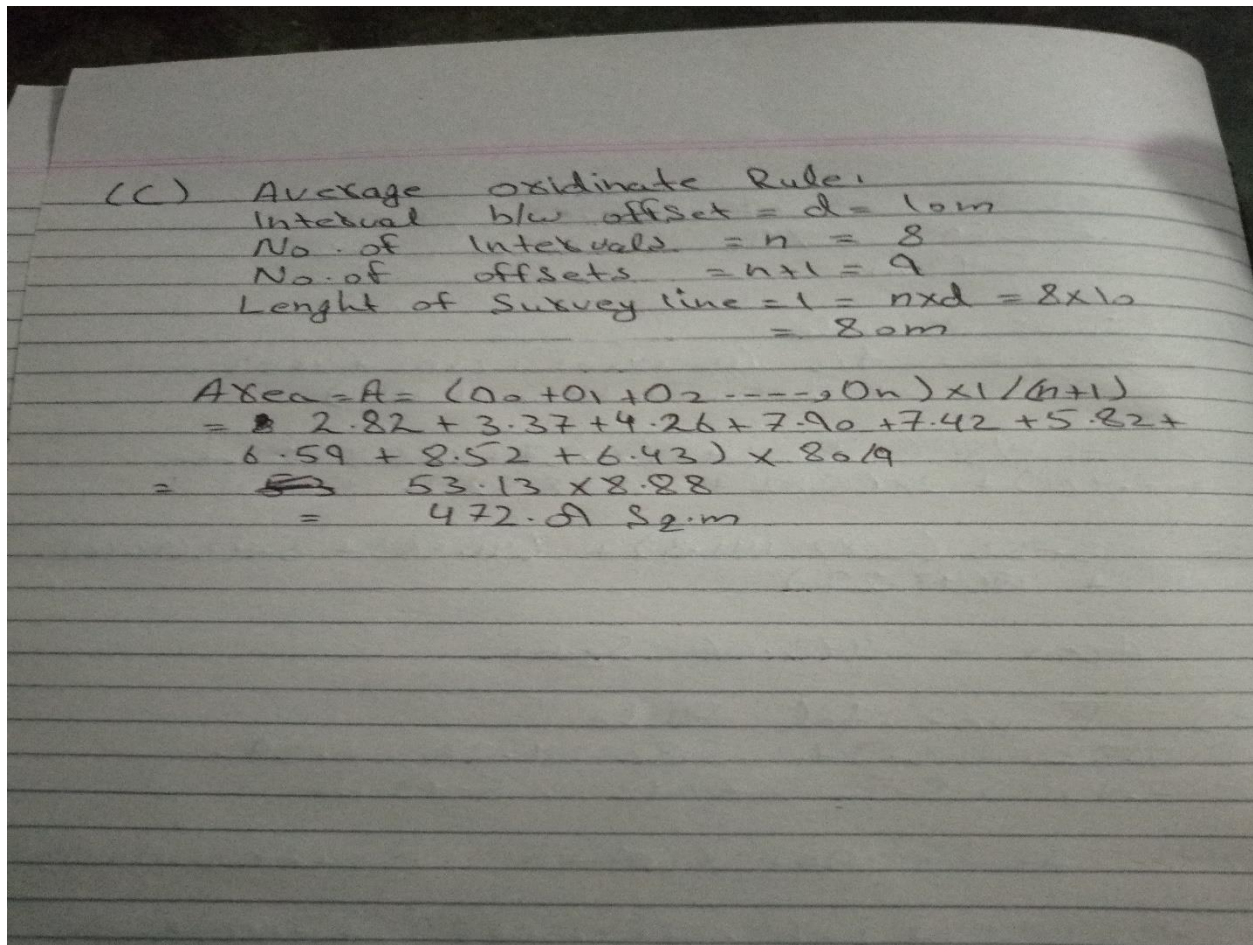 (C) Average oridinate Rule.
Interval b/w offset = d = 10m
No. of Intervals = n = 8
No. of offsets = n+1 = 9
Lenght of Survey line = l = nxd = 8x10
= 80m
Area = A = (O0 + O1 + O2 -----, On) x l / (n+1)
= 2.82 + 3.37 + 4.26 + 7.90 + 7.42 + 5.82 +
6.59 + 8.52 + 6.43) x 80/9
= 53.13 x 8.88
= 472. Sq.m